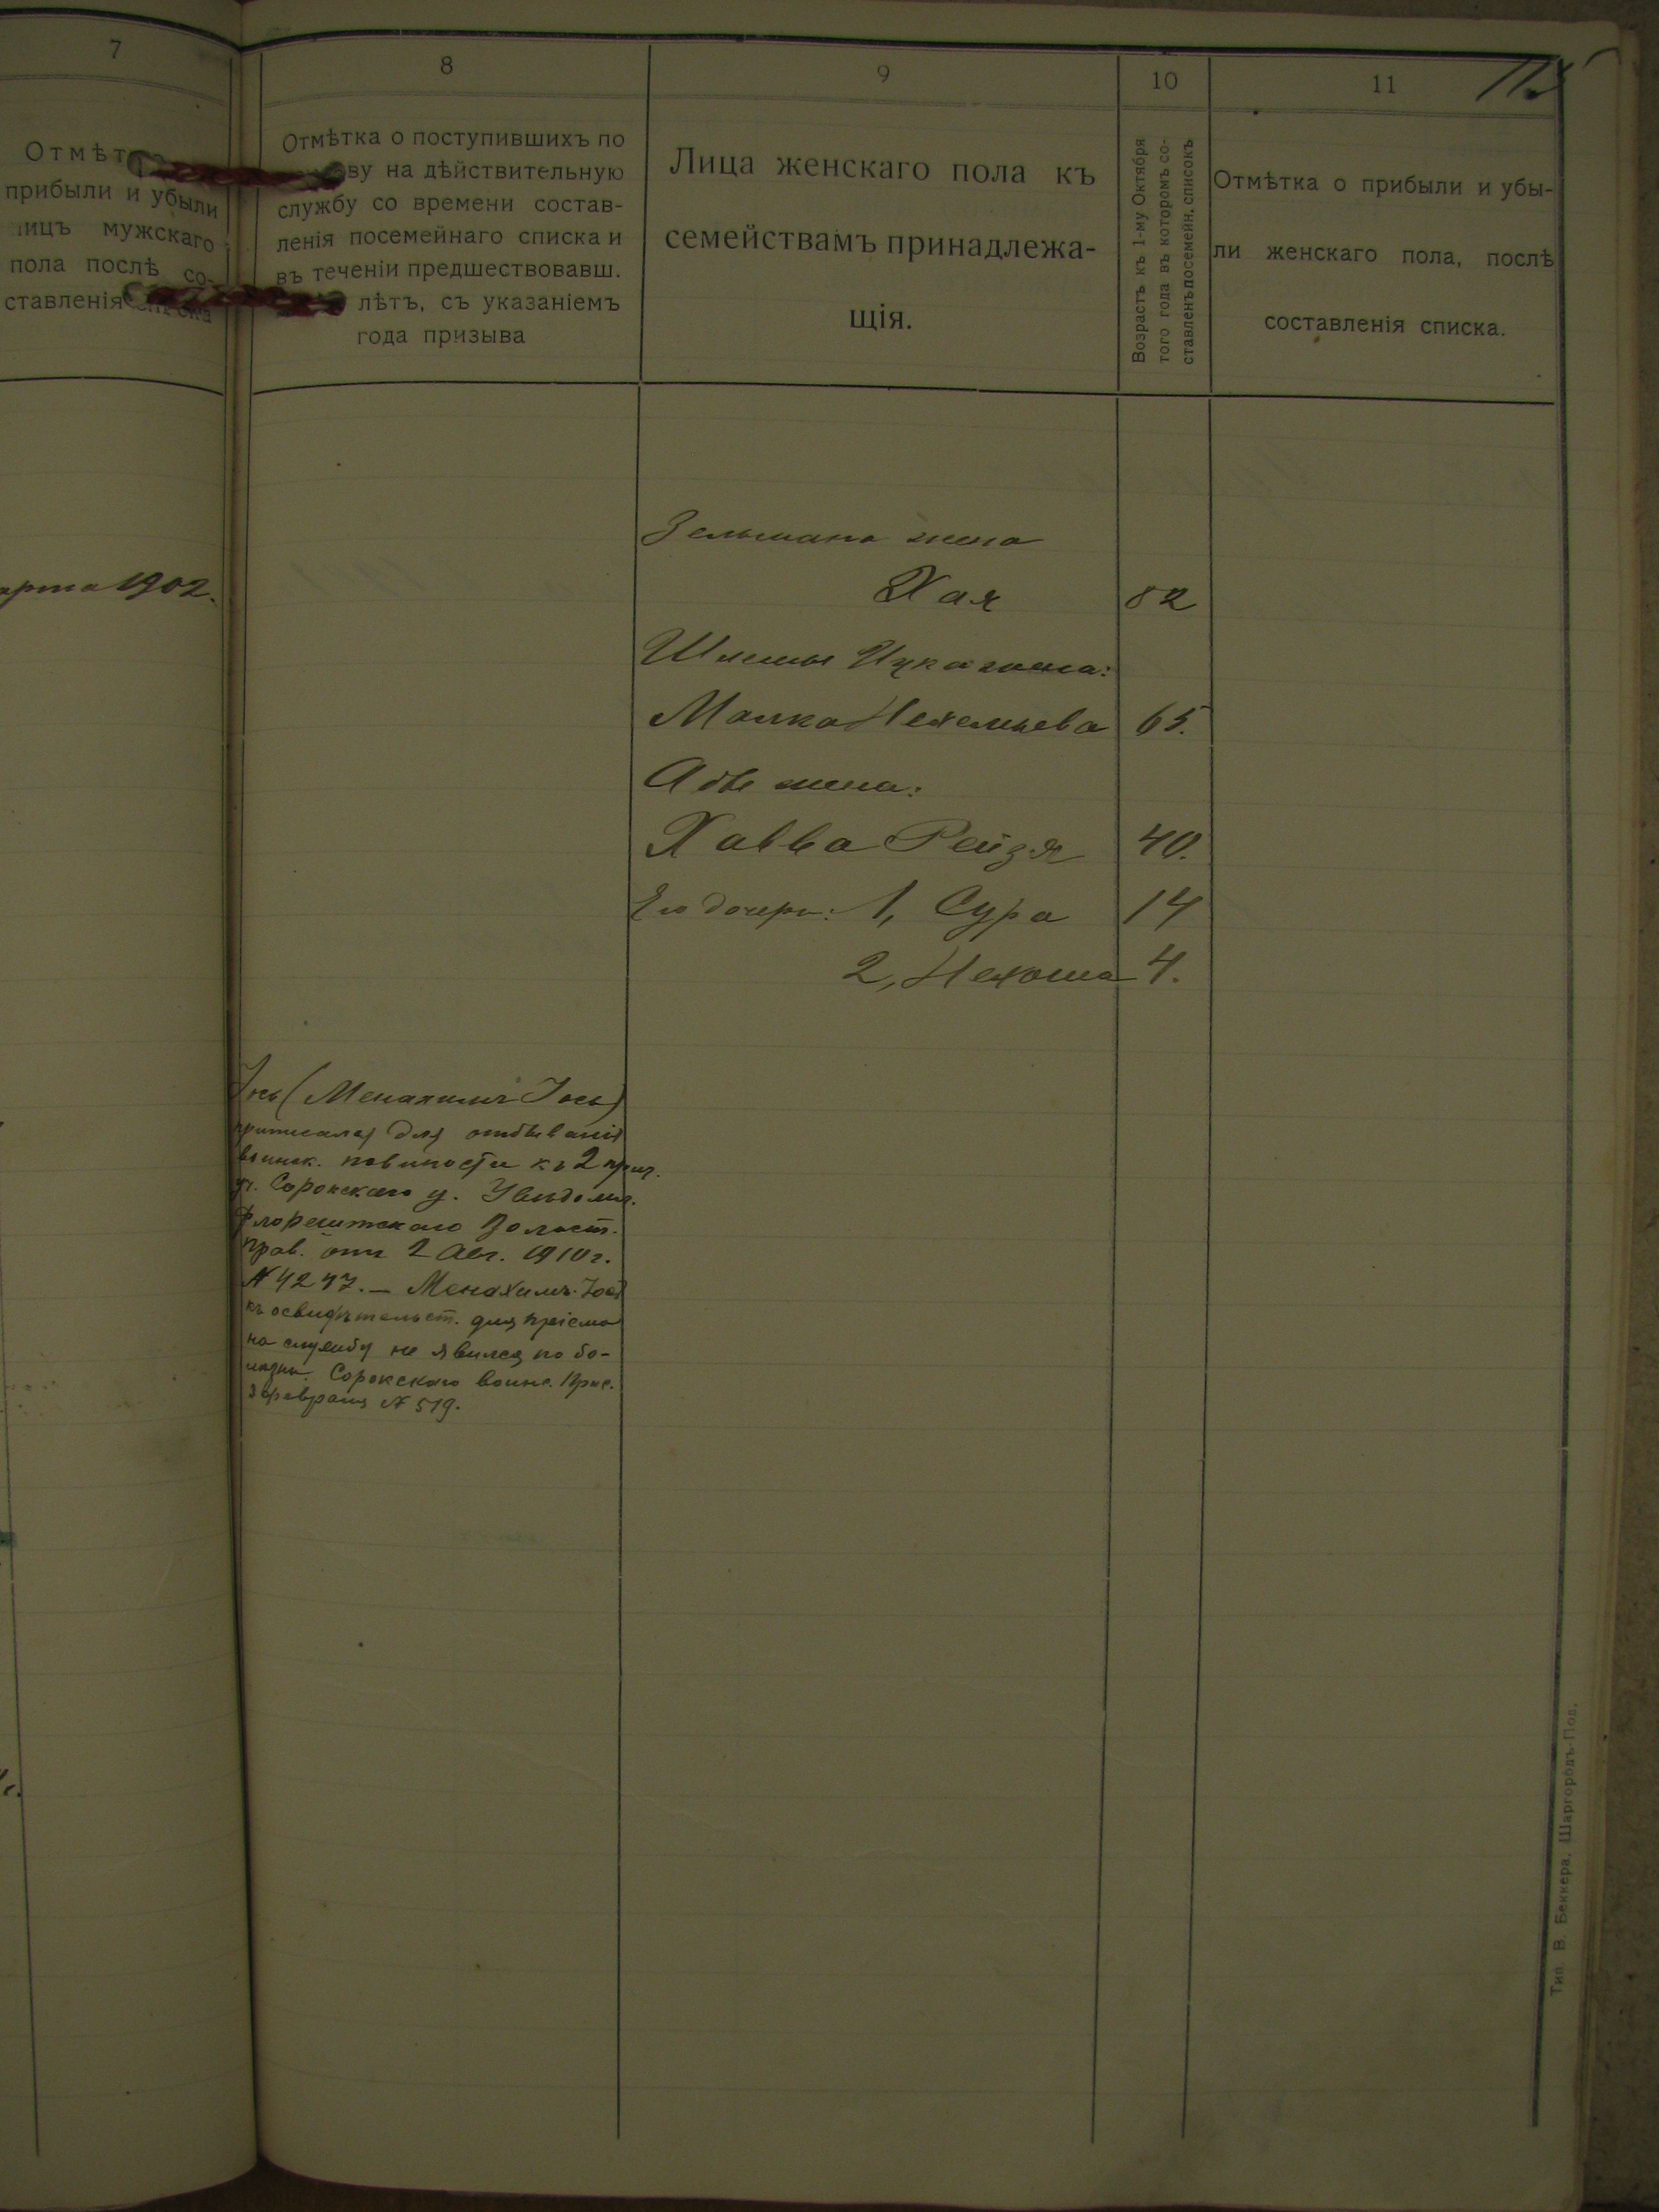 7
Отмѣт
прибыли и убыли
лицъ мужскаго
пола послѣ со-
ставленія списка
арта 1902.
8
Отмѣтка о поступившихъ по
ву на дѣйствительную
службу со времени состав-
ленія посемейнаго списка и
въ теченіи предшествовавш.
лѣтъ, съ указаніемъ
года призыва
Іось (Менахимъ Іось)
приписался для отбыванія
воинск. повиности къ 2 приз.
уч. Сорокскаго у. Увѣдомл.
Флорештскаго Волост.
прав. отъ 2 Авг. 1910 г.
№ 4247. — Менахимъ-Іось
къ освидѣтельст. для пріема
на службу не явился по бо-
лѣзни. Сорокскаго воинс. Прис.
3 февраля № 519.
9
Лица женскаго пола къ
семействамъ принадлежа-
щія.
Зельмана жена
Хая
Шлемы Ицка жена:
Малка Нехемьева
Абы жена:
Хавва Рейзя
Его дочери: 1, Сура
2, Нехома
10
Возрастъ къ 1-му Октября
того года въ которомъ со-
ставленъ посемейн. списокъ
82
65.
40.
14
4.
11
Отмѣтка о прибыли и убы-
ли женскаго пола, послѣ
составленія списка.
Тип. В. Беккера, Шаргородъ-Под.